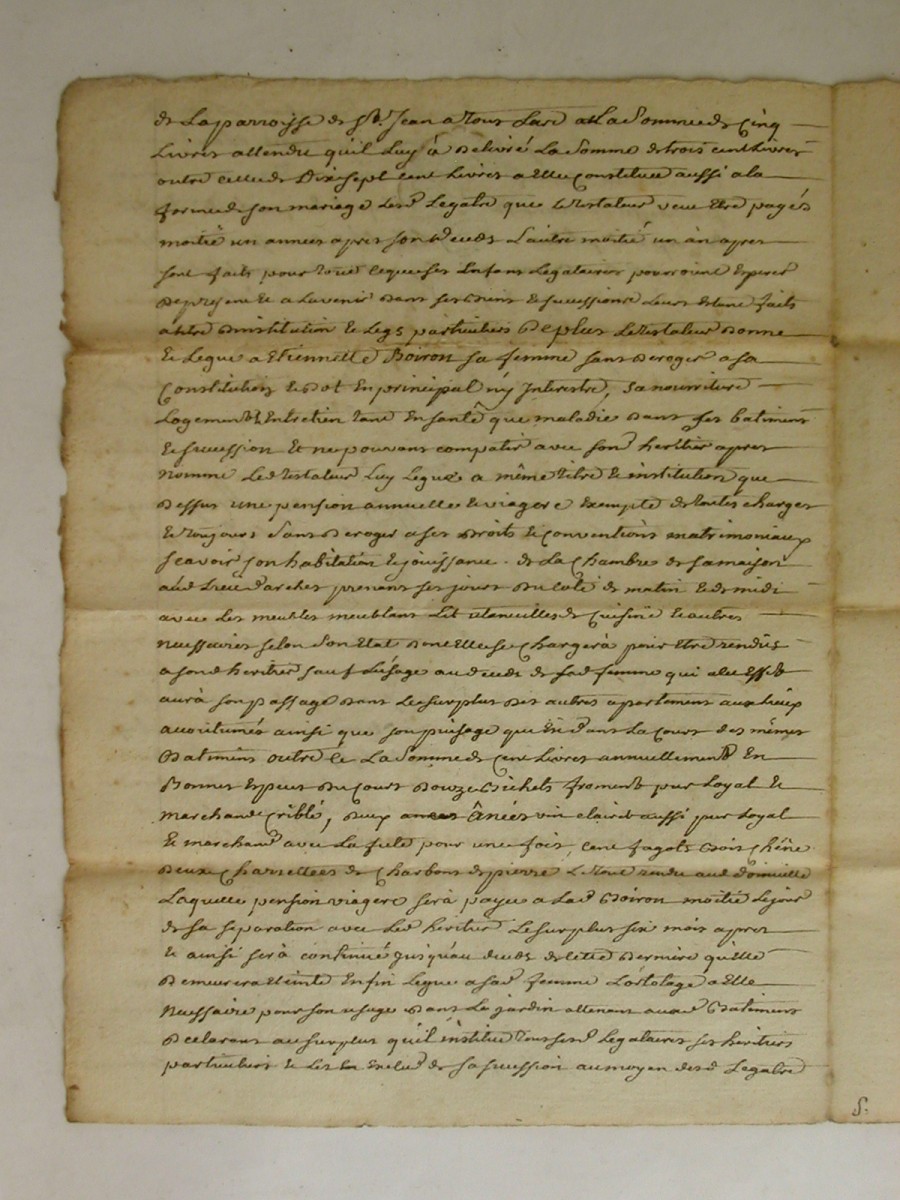 de La parroisse de St. Jean a Tous Lare a La Somme de Cinq
Livres attendu quil Luy à Delivré La Somme de trois cent Livres
outre celle de Dix sept cent Livres a Elle Constituée aussi a la
forme de son mariage Lesd. Legats que le testateur veut Etre payés
moitié un année apres son deceds L'autre moitié un an apres
sont faits pour tout ce que ses Enfans Legataires pourroient Esperer
De present Et a Lavenir Dans ses Biens Et succession Leurs Etant faits
a titre Dinstitution Et Legs particuliers De plus Le testateur Donne
Et Legue a Etiennette Boiron sa femme sans Deroger a sa
Constitution De Dot En principal n'y Interests, Sa nourriture
Logement Et Entretien tant En santé que maladie Dans ses batimens
Et succession Et ne pouvant compatir avec son heritier apres
Nommé Led. testateur Luy Legue a même titre D'institution que
Dessus une pension annuelle Et viagere Exempte de toutes charges
Et toujours Sans Deroger a ses Droits Et Conventions matrimoniaux
scavoir son habitation Et jouissance de La Chambre de sa maison
aud. Lieu prenant ses jours Du Coté de matin Et de midi
avec Les meubles meublans Lit utancilles de Cuisine Et autres
necessaires selon Son Etat Dont Elle se Chargerà pour Etre rendus
a sond. heritier sauf Lusage au deceds de sad. femme qui
aurà son passage Dans Le surplus Des autres apartement aux lieux
accoutumés ainsi que son puisage Dans La Cour des mêmes
Batimens outre ce La Somme de Cent Livres annuellement En
Bonnes Especes Du Cours Douze Bichets froment pur Loyal Et
marchand Criblé, Deux Anées vin clairet aussi pur Loyal
Et marchand avec La futte pour une fois, Cent fagots Bois Chêne
Deux Charrettées de Charbons de pierre Le tout rendu aud. Domicille
Laquelle pension viagere serà payée a Lad. Boiron moitié Le jour
de sa separation avec Led. heritier Le surplus six mois apres
Et ainsi serà continué jusqu'au deceds de cette Derniere qu'elle
Demeurera Eteinte Enfin Legue a sad. femme Lortolage a Elle
Necessaire pour son usage Dans Le jardin attenant auxd. Batimens
Declarant au surplus qu'il institue tous sesd. Legataires ses heritiers
particuliers Et Les En Exclud de sa succession au moyen desd. Legats
S.